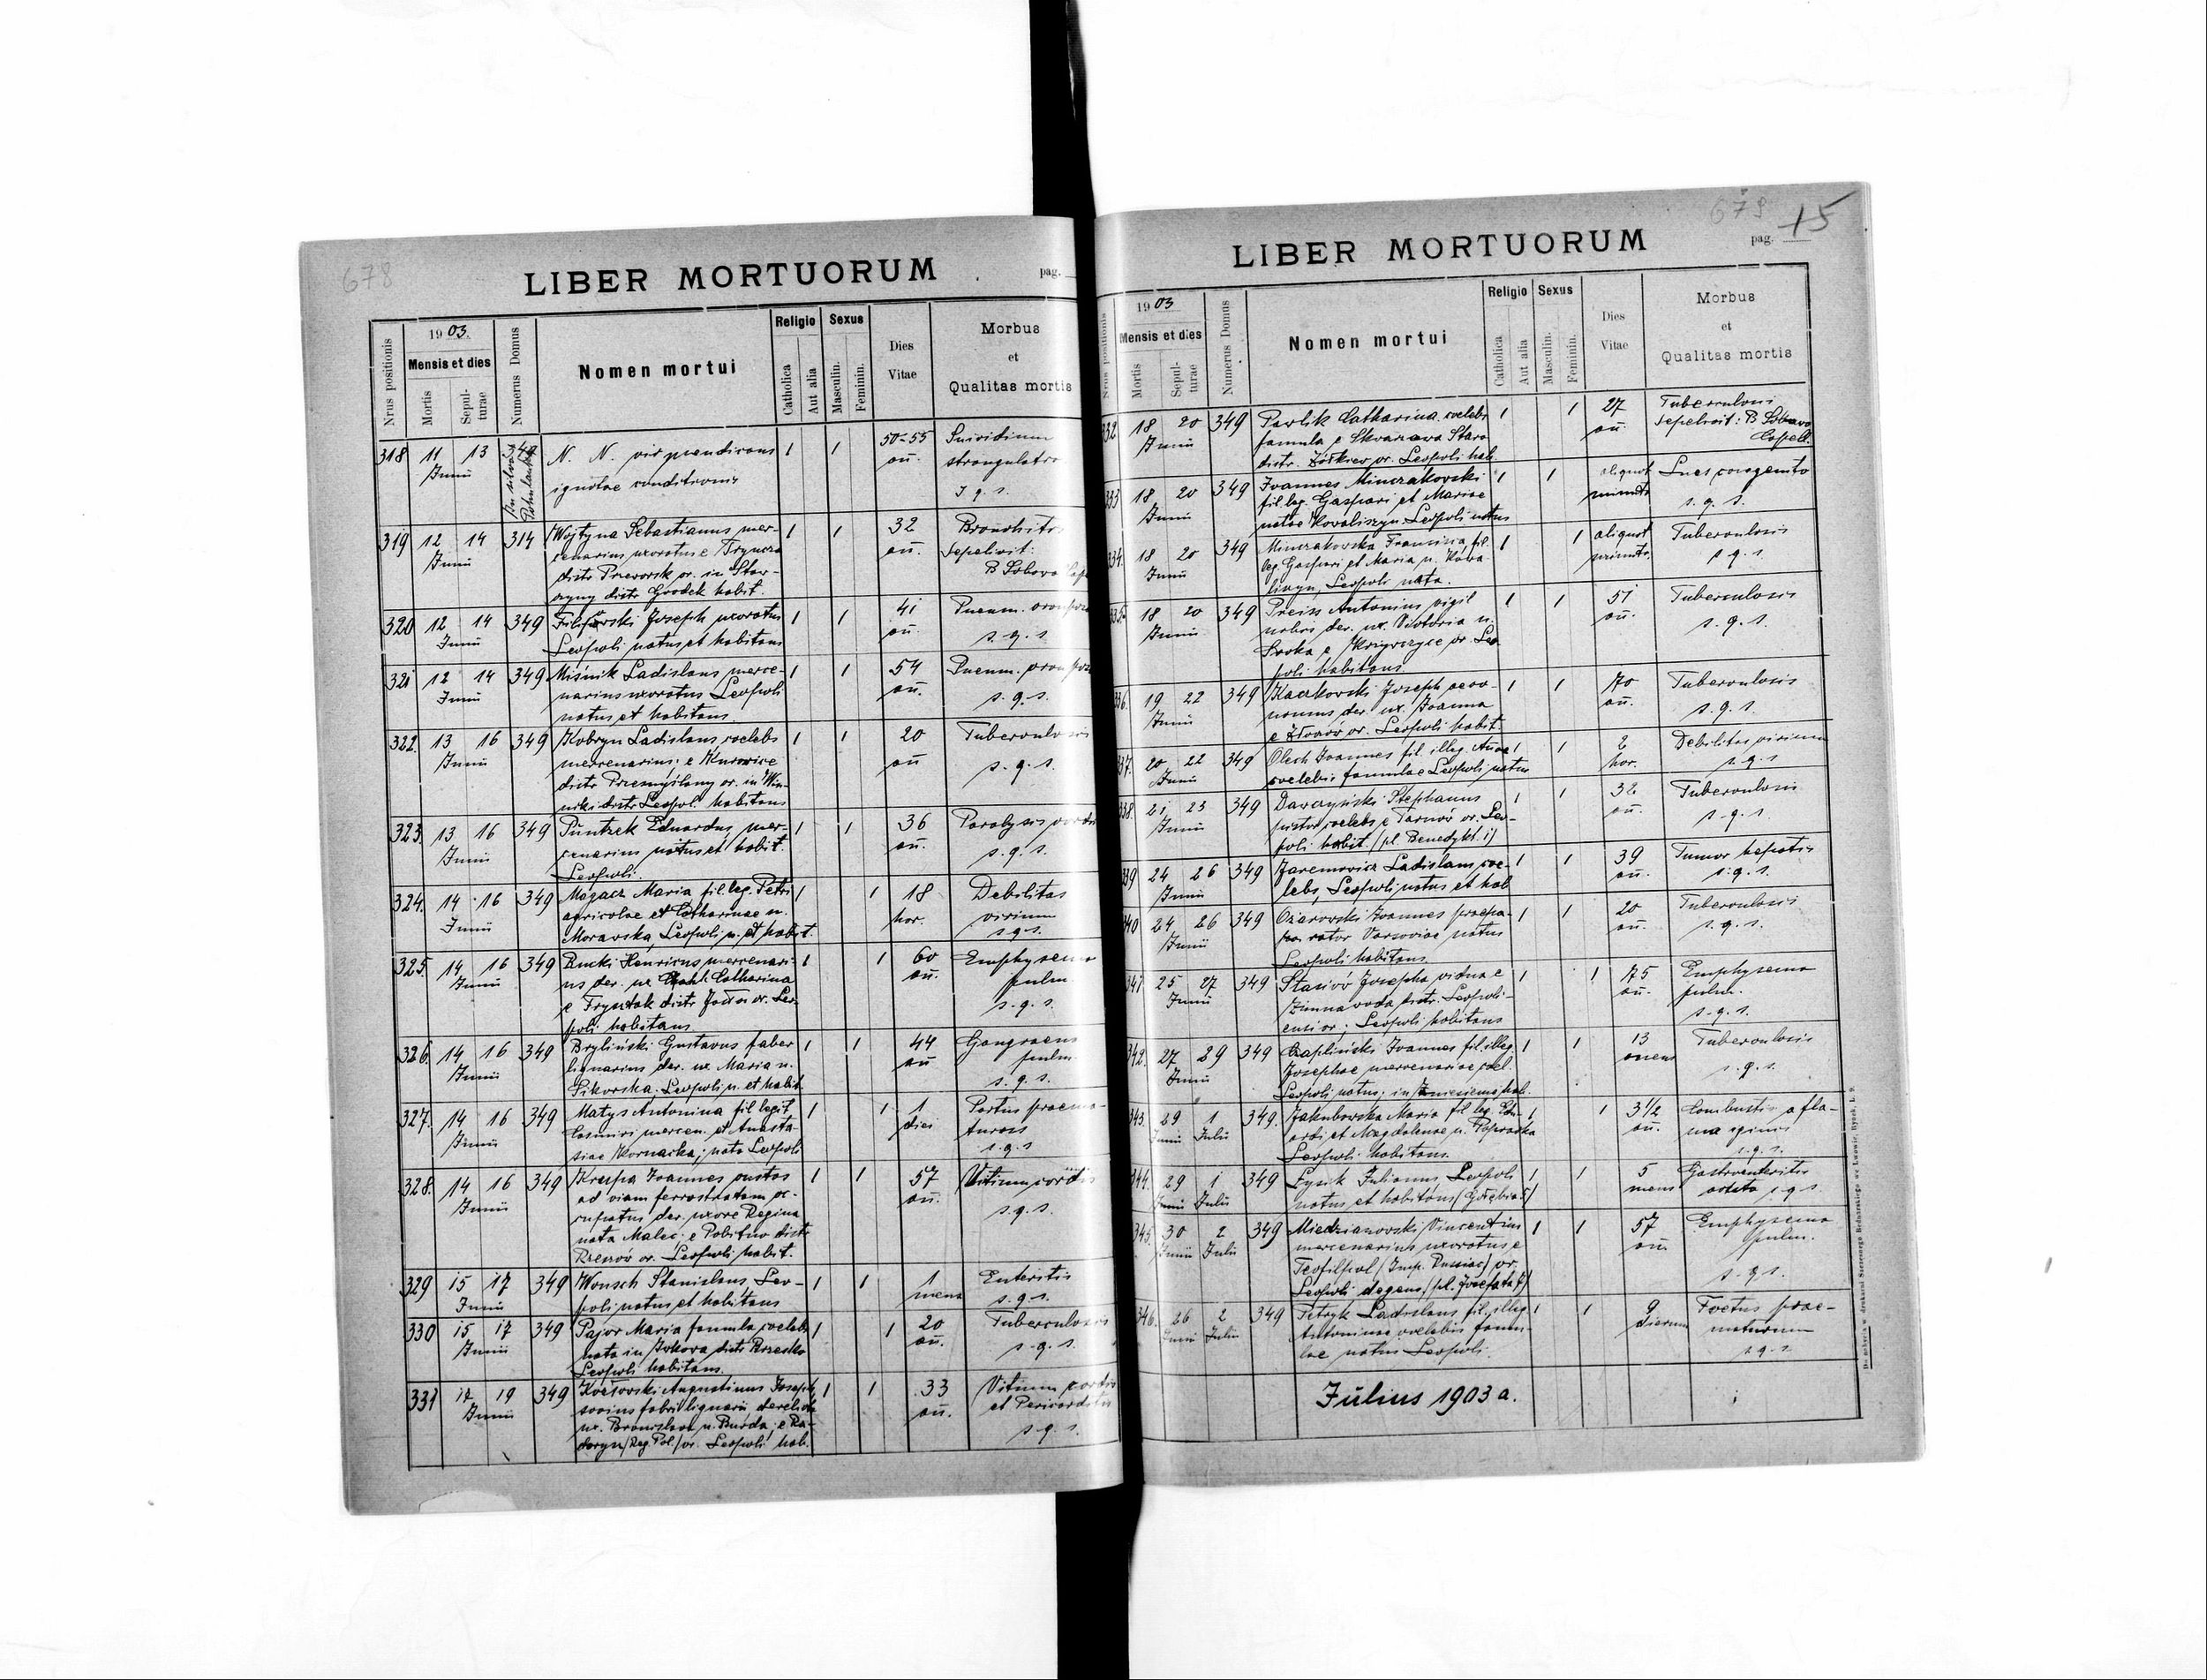 678
LIBER MORTUORUM
pag.
Nrus positionis
1903.
Mensis et dies
Mortis
Sepul-
turae
Numerus Domus
Nomen mortui
Religio
Catholica
Aut alia
Sexus
Masculin.
Feminin.
Dies
Vitae
Morbus
et
Qualitas mortis
318 11 13 N. N. vir 1 1 50-55 Suicidium
Junii ignotae conditionis an. strangulatio
s. q. s.
319 12 14 314 Wojtyna Sebastianus mer- 1 1 32 Bronchitis
Junii cenarius uxoratus e Tryncza an. Sepelivit:
distr. Przeworsk or. in Staw- B
czany distr. Grodek habit.
320 12 14 349 Joseph uxoratus 1 1 41 Pneum.
Junii Leopoli natus et habitans an. s. q. s.
321 12 14 349 Miśnik Ladislaus merce- 1 1 54 Pneum.
Junii narius uxoratus Leopoli an. s. q. s.
natus et habitans
322. 13 16 349 Kobryn Ladislaus, coelebs 1 1 20 Tuberculosis
Junii mercenarius; e Kurowice an s. q. s.
distr. Przemyślany or. in Win-
niki distr. Leopol. habitans
323. 13 16 349 Püntzek Eduardus, mer- 1 1 36 Paralysis cordis
Junii cenarius natus et habit. an. s. q. s.
Leopoli.
324. 14 16 349 Maria fil. leg. Petri 1 1 18 Debilitas
Junii agricolae et Catharinae n. hor. virium
Moravska, Leopoli n. et habit. s q s.
325. 14 16 349 Rucki Henricus mercenari- 1 1 60 Emphysema
Junii us der. ux. Catharina an. pulm.
e Frysztak distr. Jasło or. Leo- s. q. s.
poli habitans
326. 14 16 349 Bryliński Gustavus faber 1 1 44 Gangraena
Junii lignarius der. ux. Maria n. an pulm
Sikorska; Leopoli n. et habit. s. q. s.
327. 14 16 349 Matys Antonina fil. legit. 1 1 1 Partus praema-
Junii Casimiri mercen. et Anasta- diei turus
siae Kornacka; nata Leopoli s. q. s
328. 14 16 349 Krupa Joannes custos 1 1 57 Vitium cordis
Junii ad viam ferrostratam oc- an. s. q. s.
cupatus der. uxore Regina
nata Malec; e Pobitno distr.
Rzeszów or. Leopoli habit.
329 15 17 349 Wonsch Stanislaus Leo- 1 1 1 Enteritis
Junii poli natus et habitans mens s. q. s.
330 15 17 349 Pajor Maria famula coelebs 1 1 20 Tuberculosis
Junii nata in distr. Brzesko an. s. q. s.
Leopoli habitans.
331 17 19 349 Augustinus Joseph, 1 1 33 Vitium cordis
Junii socius fabri lignarii an. et Pericarditis
ux. Bronislava n. Burda; e Ra- s. q. s.
doryn/Reg. Pol./or. Leopoli hab.
679 15
LIBER MORTUORUM
pag.
Nrus positionis
1903
Mensis et dies
Mortis
Sepul-
turae
Numerus Domus
Nomen mortui
Religio
Catholica
Aut alia
Sexus
Masculin.
Feminin.
Dies
Vitae
Morbus
et
Qualitas mortis
332 18 20 349 Pavlik Catharina coelebs 1 1 27 Tuberculosis
Junii famula e Skwarzava Stara an. Sepelivit: B
distr. Żółkiew or. Leopoli hab. Capell.
333 18 20 349 Joannes Minczakovski 1 1 aliquot Lues congenita
Junii fil. leg. Gaspari et Mariae minuta s. q. s.
natae Kovaliszyn Leopoli natus
334. 18 20 349 Minczakovska Francisca fil. 1 1 aliquot Tuberculosis
Junii leg. Gaspari et Maria n. Kova- minuta. s. q. s.
liszyn, Leopoli nata.
335. 18 20 349 Preiss Antonius vigil 1 1 51 Tuberculosis
Junii der. ux. Victoria n. an. s. q. s.
Sroka e Krzywczyce or. Leo-
poli habitans
336. 19 22 349 Kaczkovski Joseph oeco- 1 1 70 Tuberculosis
Junii nomus der. ux. Joanna an. s. q. s.
e Złoczów or. Leopoli habit.
337. 20 22 349 Olech Joannes fil. illeg. Annae 1 1 2 Debilitas virium
Junii coelebis famulae Leopoli natus hor. s. q. s
338. 21 23 349 Stephanus 1 1 32 Tuberculosis
Junii pistor coelebs e Tarnów or. Leo- an. s. q. s.
poli habit. (pl. Benedykt. 1)
339 24 26 349 Jaremovicz Ladislaus coe- 1 1 39 Tumor hepatis
Junii lebs, Leopoli natus et hab an. s. q. s.
340 24 26 349 Ożarovski Joannes praepa- 1 1 20 Tuberculosis
Junii rator Varsoviae natus an. s. q. s.
Leopoli habitans
341 25 27 349 Stasiów Josepha vidua e 1 1 75 Emphysema
Junii Zimnawoda distr. Leopoli- an. pulm.
ensi or.; Leopoli habitans s. q. s.
342. 27 29 349 Czapliński Joannes fil. illeg. 1 1 13 Tuberculosis
Junii Josephae mercenariae coel. mens s. q. s.
Leopoli natus; in hab.
343. 29 1 349. Jakubovska Maria fil. leg. Edu- 1 1 3 1/2 Combustio a fla-
Junii Julii ardi et Magdalenae n. an. ma ignis
Leopoli habitans. s. q. s.
344. 29 1 349 Łysik Julianus Leopoli 1 1 5 Gastroenteritis
Junii Julii natus et habitans/Gołębia 5/ mens acuta s q s
345. 30 2 349 Miedzianovski Vincentius 1 1 57 Emphysema
Junii Julii mercenarius uxoratus e an pulm.
Teofilpol (Imp. Russiae) or. s. q s.
Leopoli degens/pl. Josefata 7/
346. 26 2 349 Petryk Ladislaus fil. illeg. 1 1 9 Foetus prae-
Junii Julii Antoninae coelebis famu- dierum maturum
lae natus Leopoli. s. q. s.
Július 1903 a.